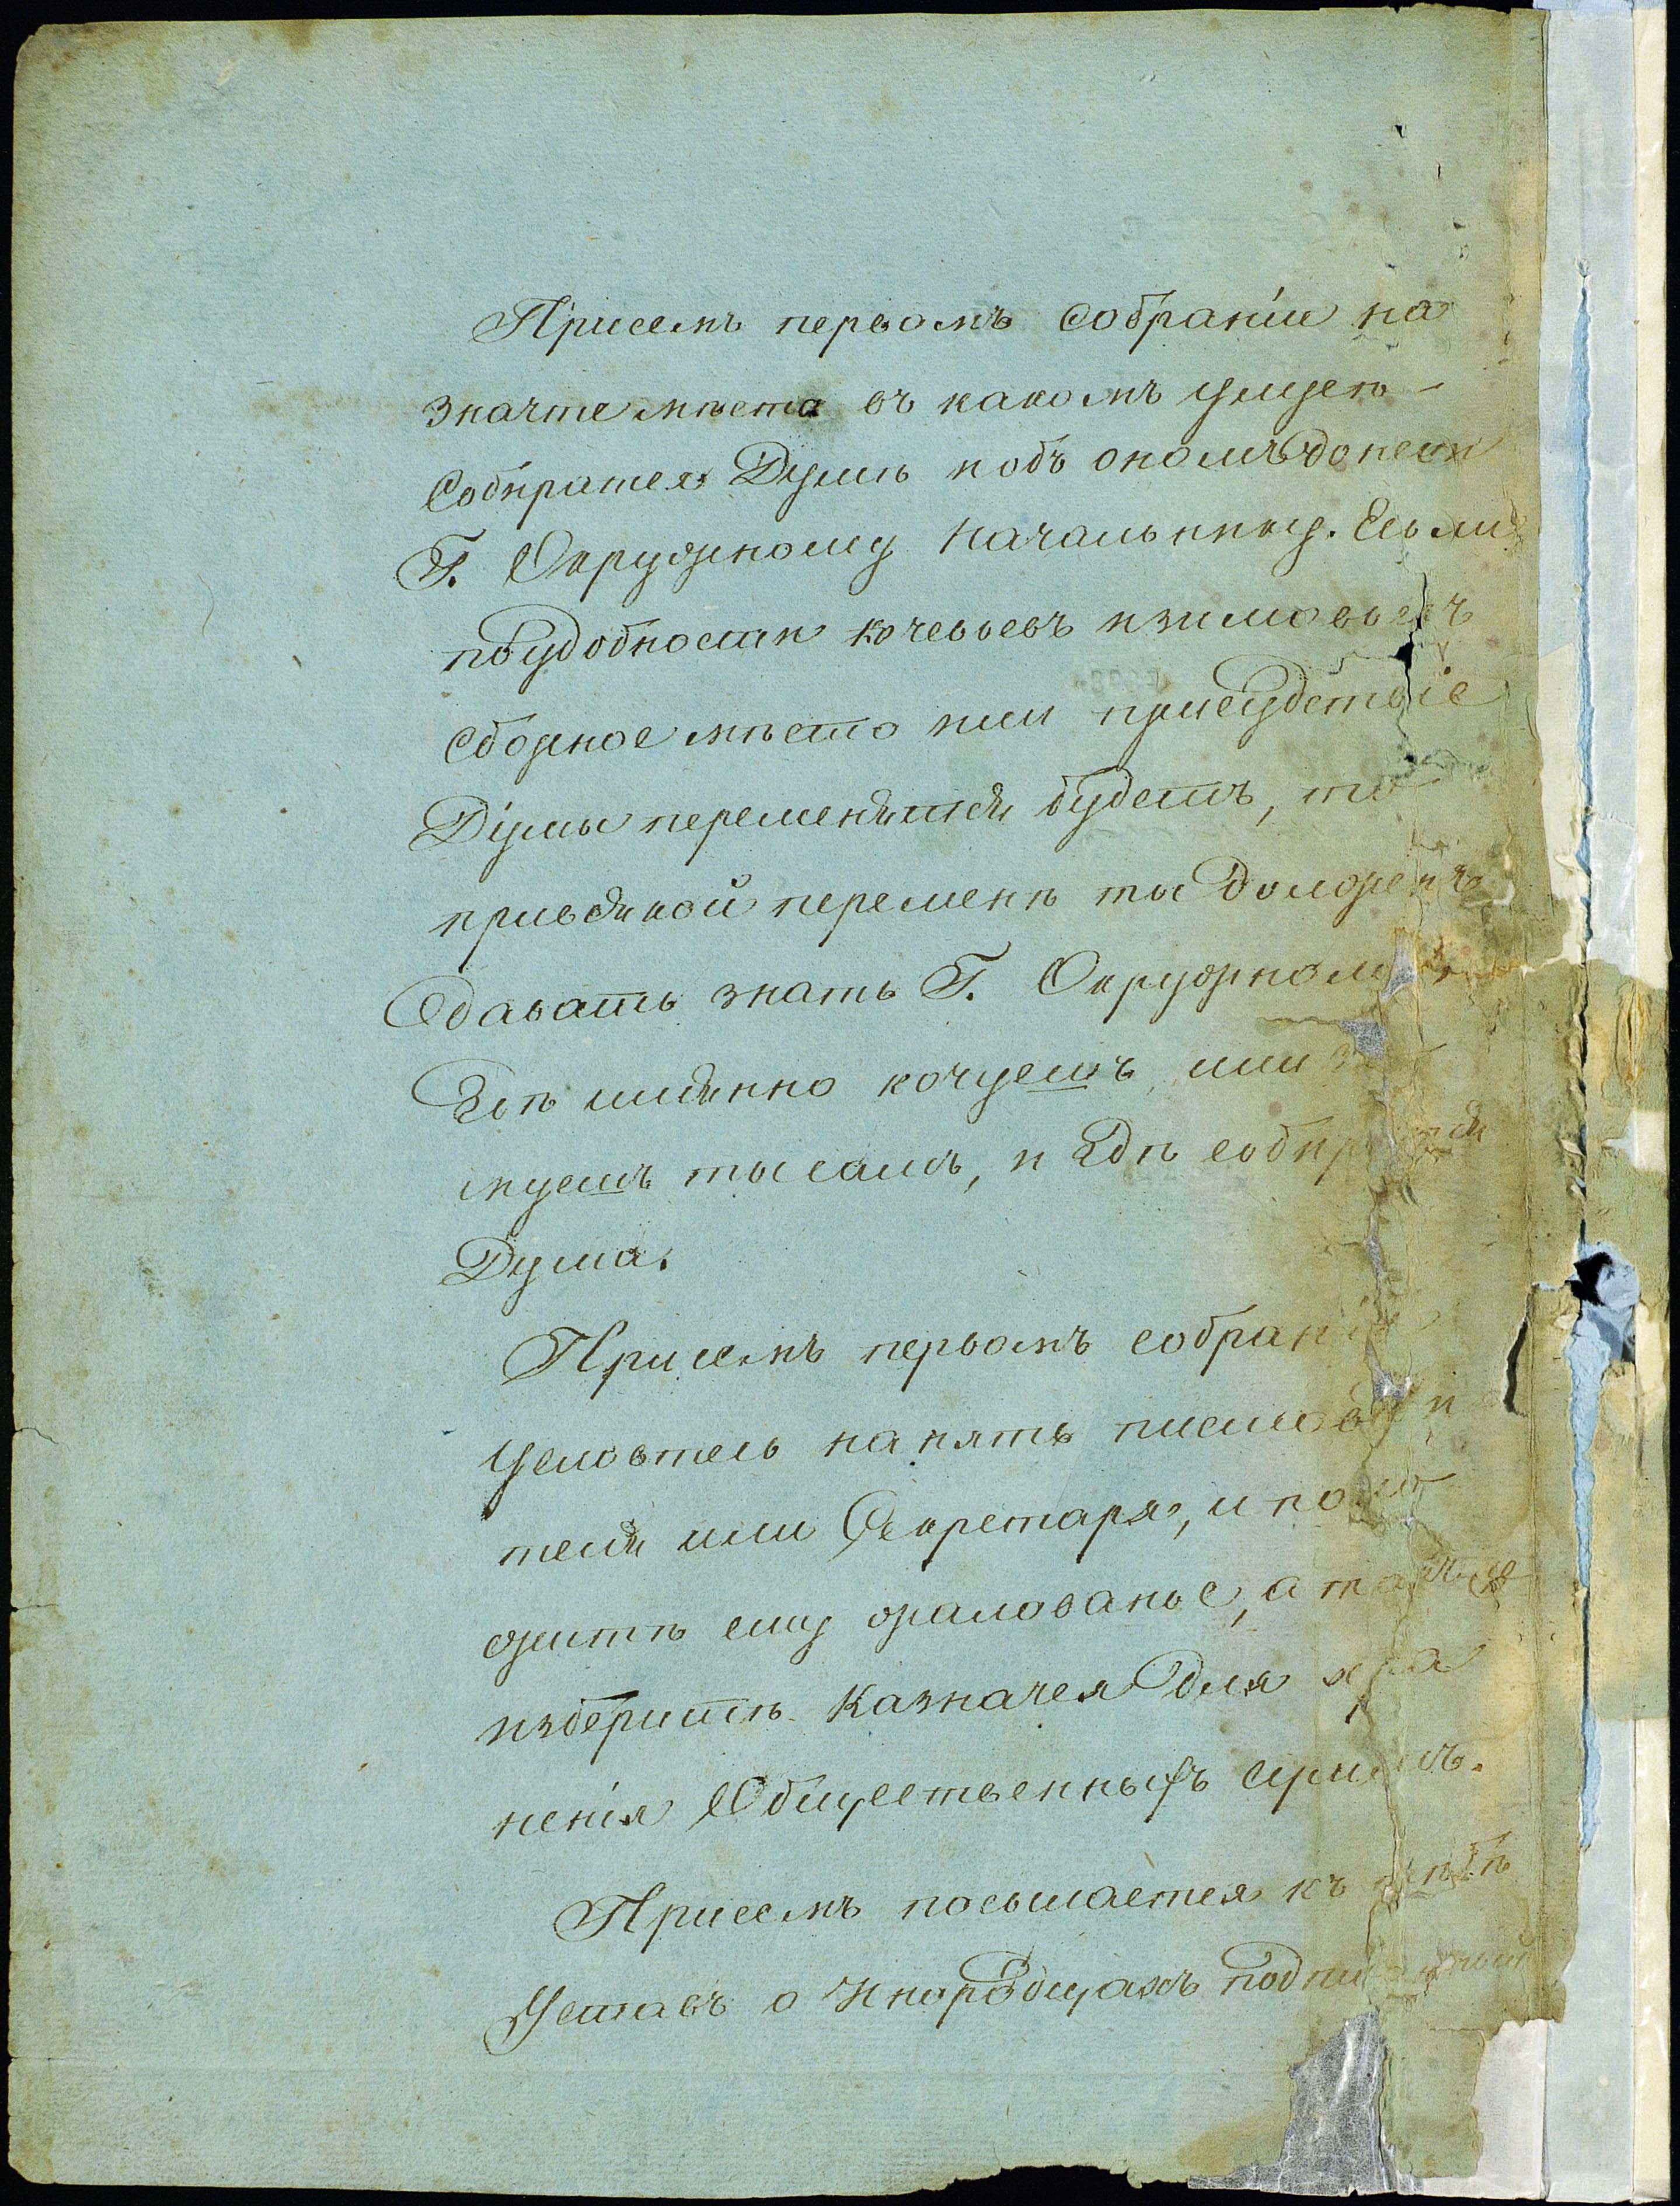 Присемъ первомъ собраніи на
значте мѣста въ какомъ улусѣ
Собиратся Думѣ и объ ономъ донеси
Г. Окружному Начальнику. Если
по удобности кочевьевъ и зимовьевъ
сборное мѣсто или присудствіе
Думы переменятся будетъ, то
при всякой перемене ты долженъ
давать знать Г. Окружному
Где имянно кочуешъ или зи
муешъ ты самъ, и где собирается
Дума.
Присемъ первомъ собраніи
нанять писмоводи
теля или Секретаря, и поло
жить ему жалованье, а также
изберить Казначея для хра
ненія Общественныхъ суммъ.
Присемъ посылается къ тебѣ
Уставъ о Инородцахъ